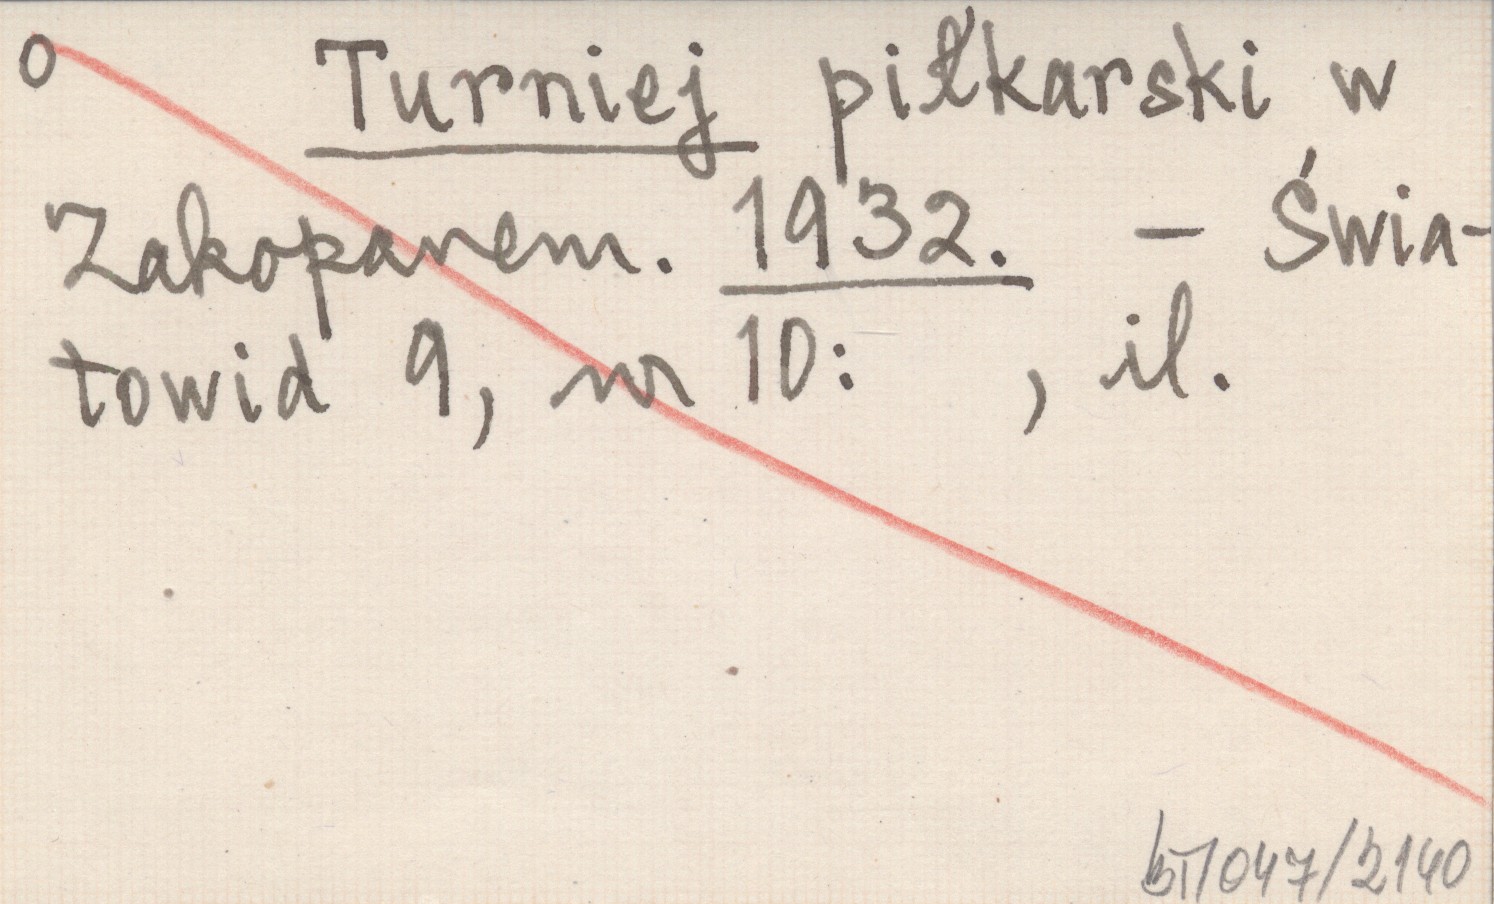 o Turniej piłkarski w
Zakopanem. 1932. – Świa-
towid 9, nr 10: , il.
bT/047/2140